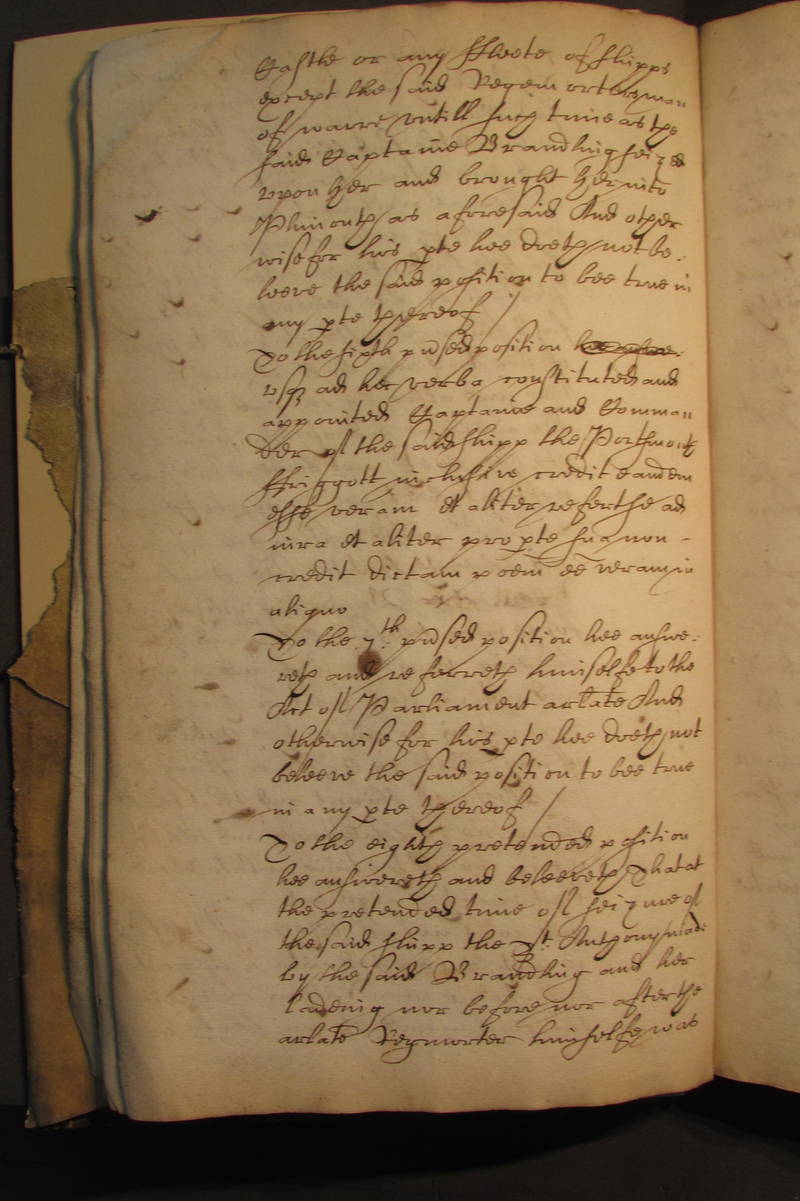 Castle or any ffleete of shipps
except the said Regemorters man
of warre untill such time as the
said Captaine Brandling seized
upon her and brought her into
Plimouth as aforesaid And other
wise for his pte hee doeth not be-
leeve the said position to bee true in
any pte thereof /
To the sixth p̃nsed position
usq ad hec verba constituted and
appointed Captaine and Comman
der of the said shipp the Portsmouth
ffriggott inclusive credit eandem
esse veram Et aliter refert se ad
iura et aliter pro pte sua non -
credit dictam poem̃ eẽ veram in
aliquo
To the 7th p̃nsed position hee answe-
reth and referreth himselfe to the
Act of Parliament arlate And
otherwise for his pte hee doeth not
beleeve the said position to bee true
in any pte thereof /
To the eighth pretended position
hee answereth and beleeveth That at
the pretended time of seizure of
the said shipp the St. Anthony made
by the said Brandling and her
ladeing nor before nor after the
arlate Regmorter himselfe was